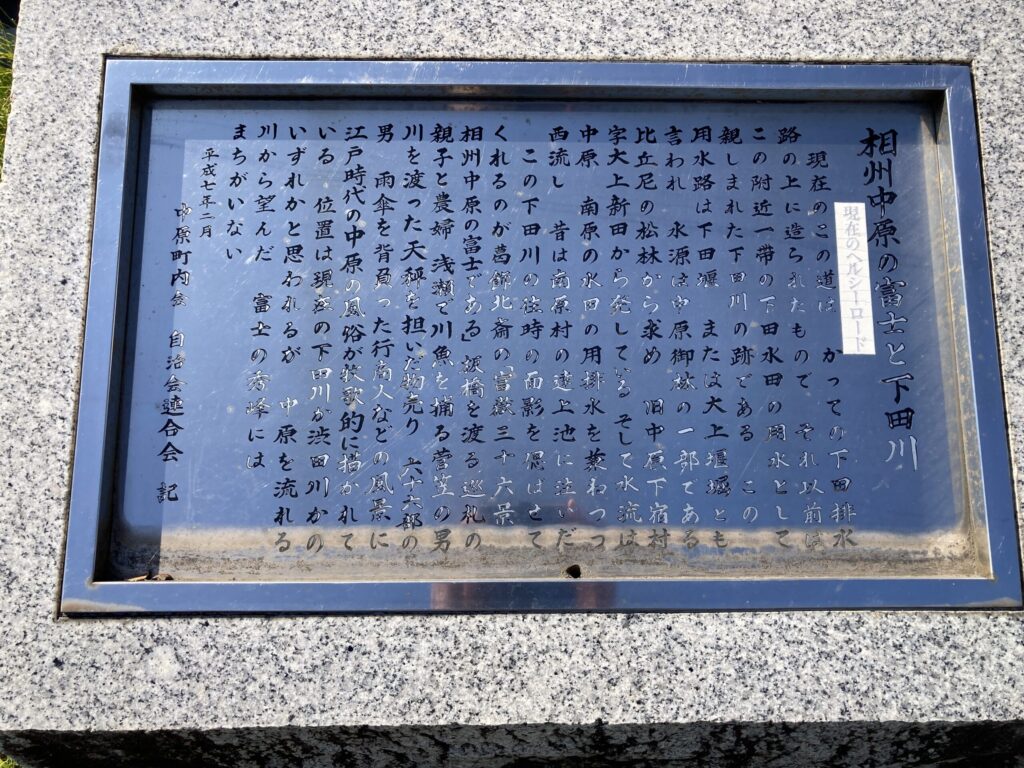 相州中原の富士と下田川
現在のヘルシーロード
現在のこの道は かつての下田排水
路の上に造られたもので それ以前は
この附近一帯の下田水田の用水として
親しまれた下田川の跡である この
用水路は下田堰 または大上堰堀とも
言われ 水源は中原御林の一部である
比丘尼の松林から求め 旧中原下宿村
字大上新田から発している そして水流は
中原 南原の水田の用排水を兼ねつつ
西流し 昔は南原村の達上池に注いだ
この下田川の往時の面影を偲ばせて
くれるのが葛飾北斎の「富嶽三十六景
相州中原の富士である」板橋を渡る巡礼の
親子と農婦 浅瀬で川魚を捕る菅笠の男
川を渡った天秤を担いだ物売り 六十六部の
男 雨傘を背負った行商人などの風景に
江戸時代の中原の風俗が牧歌的に描かれて
いる 位置は現在の下田川か渋田川かの
いずれかと思われるが 中原を流れる
川から望んだ 富士の秀峰には
まちがいない
平成七年二月
中原町内会 自治会連合会 記